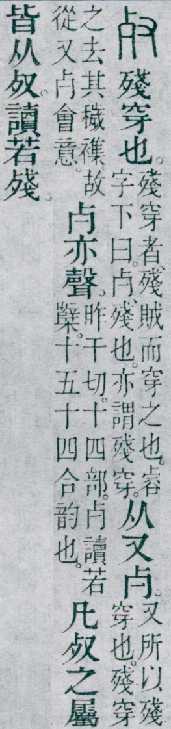 𣦼殘穿也。殘穿者、殘賊而穿之也。㕡字下曰。𣦵、殘也。亦謂殘穿。从又𣦵。又所以殘穿也。殘穿
之去其穢襍。故從又𣦵會意。𣦵亦聲。昨干切。十四部。𣦵讀若櫱。十五十四合韵也。凡𣦼之屬
皆从𣦼。讀若殘。